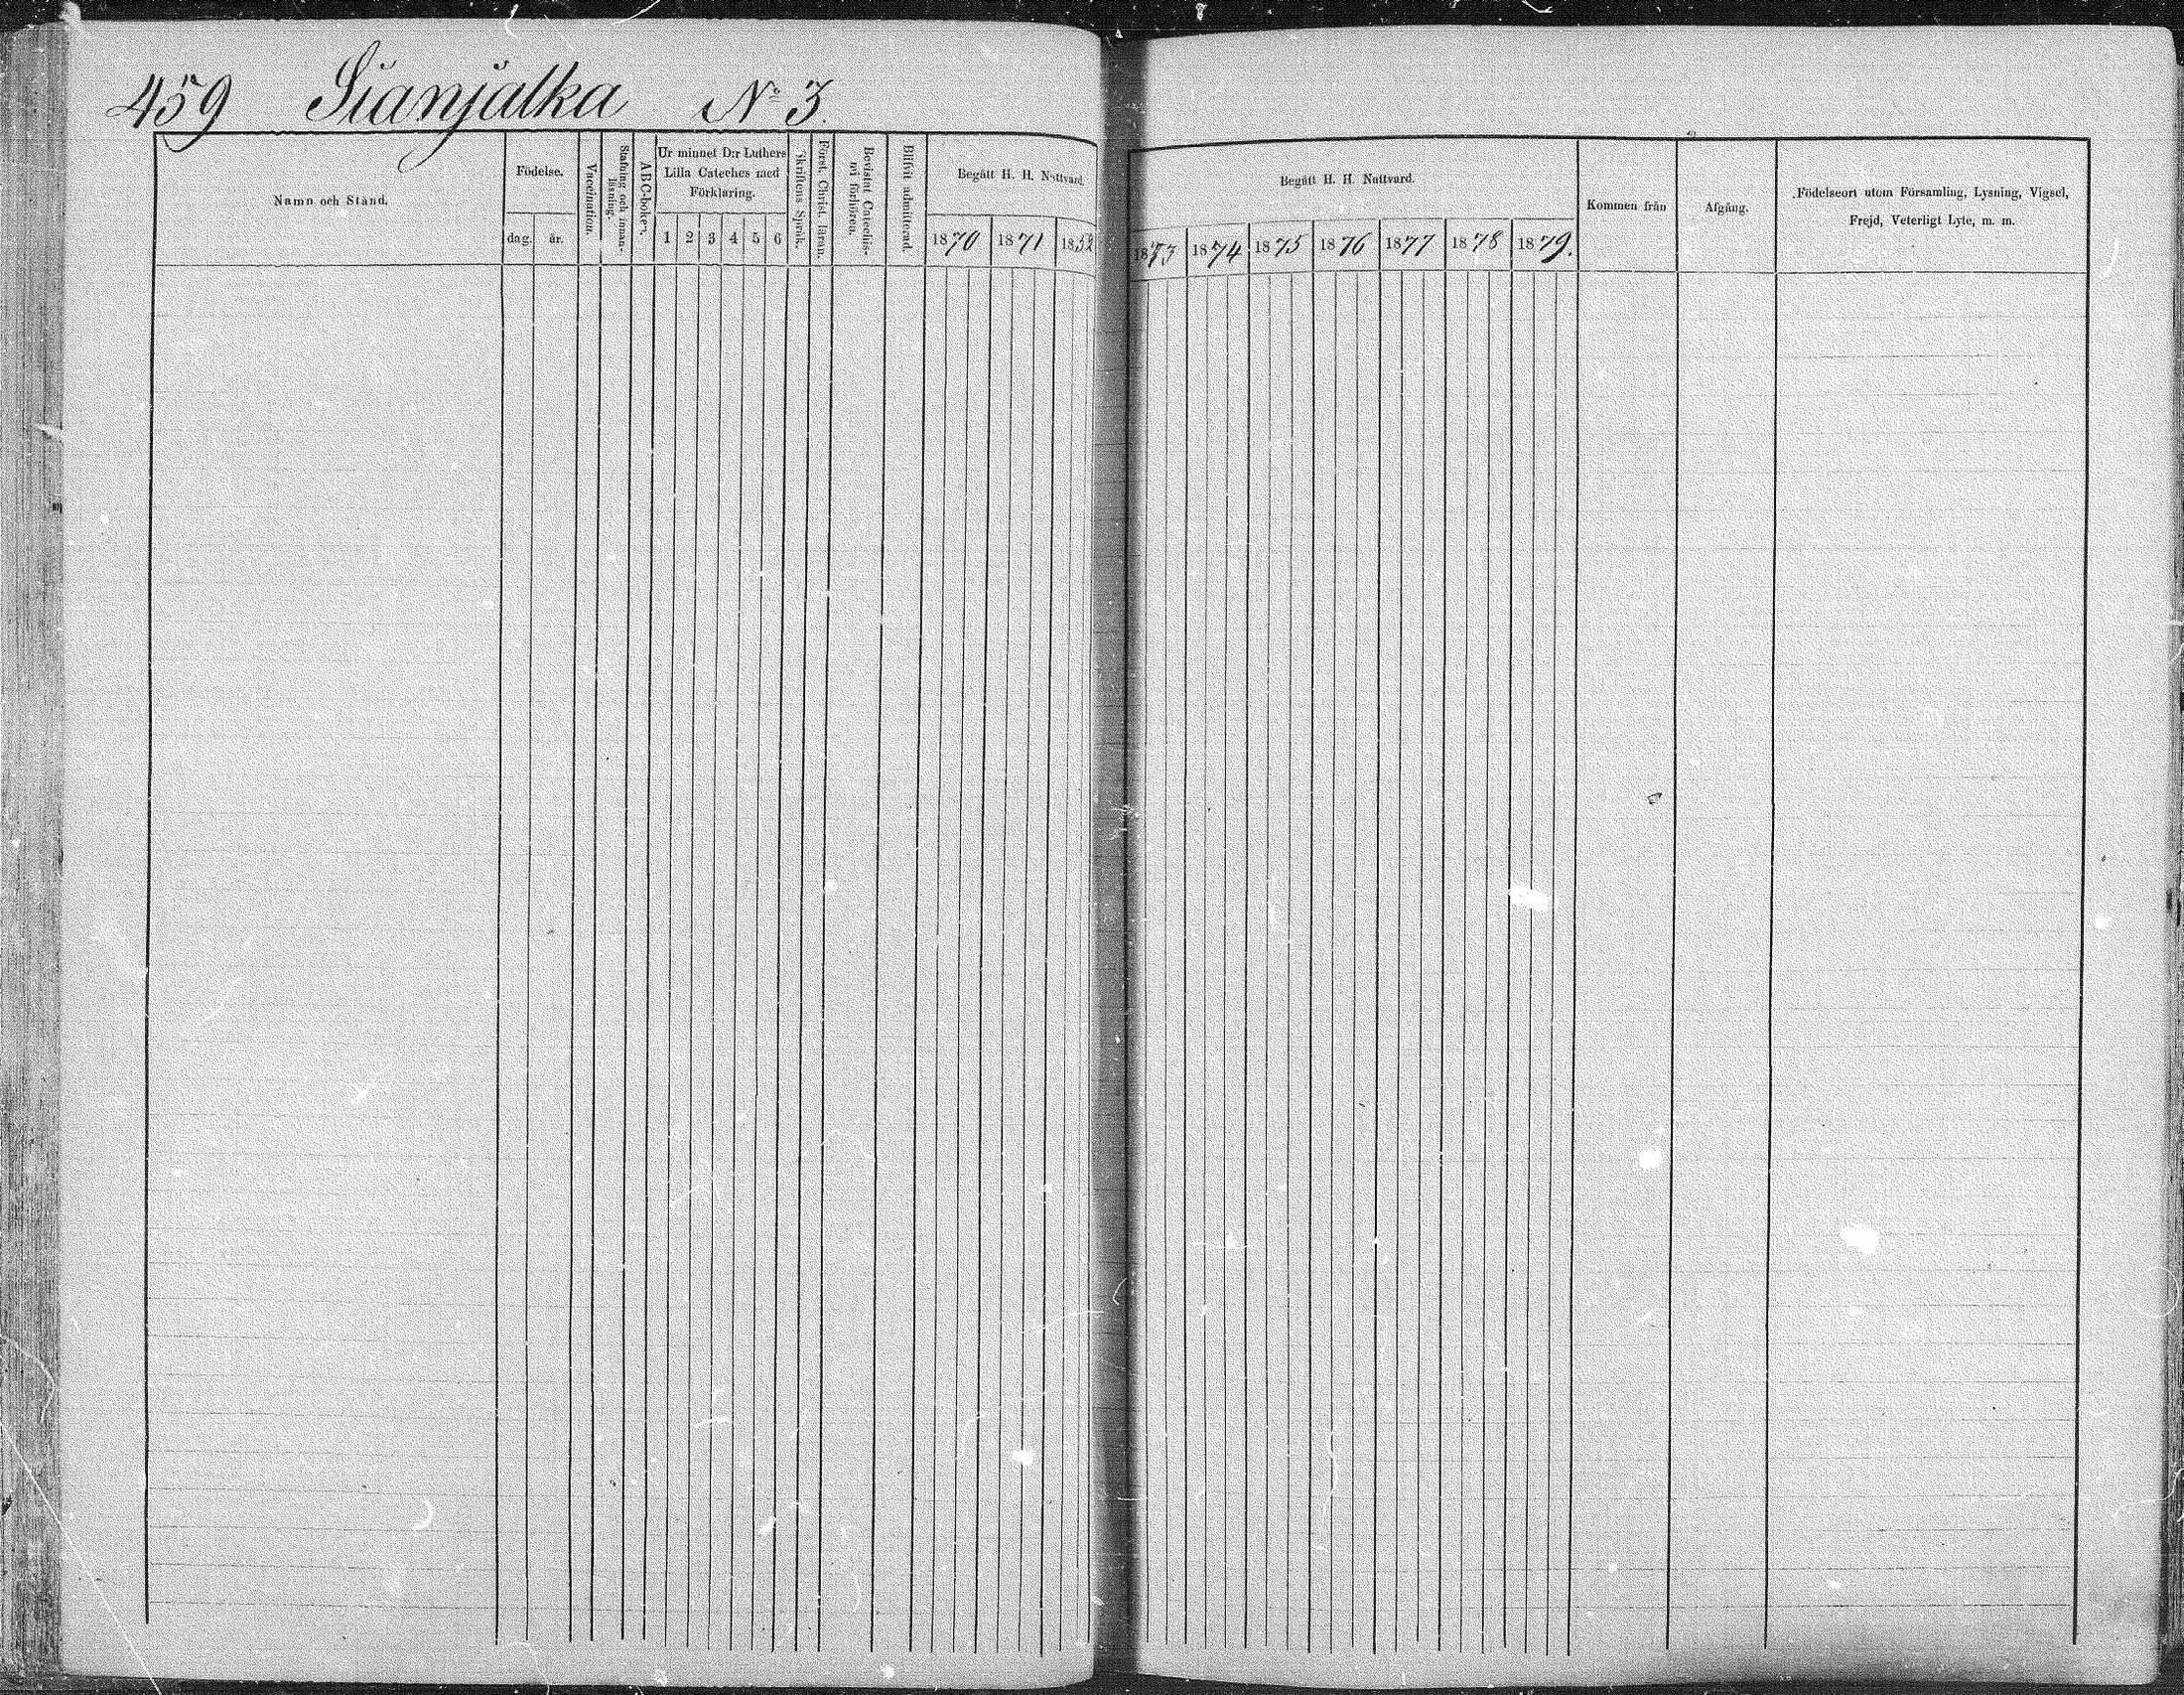 459 Sianjalka No 3.
Namn och Stånd.
Födelse.
dag. år.
Vaccination.
Stafning och innan-
läsning.
ABC-boken.
Ur minnet D:r Luthers
Lilla Cateches med
Förklaring.
1 2 3 4 5 6
Skriftens Språk.
Först. Christ. läran.
Bevistat Catechis-
mi förhören.
Blifvit admitterad.
Begått H. H. Nattvard.
1870 1871
Begått H. H. Nattvard.
1873 1874 1875 1876 1877 1878 1879.
Kommen från
Afgång.
Födelseort utom Församling, Lysning, Vigsel,
Frejd, Veterligt Lyte, m. m.